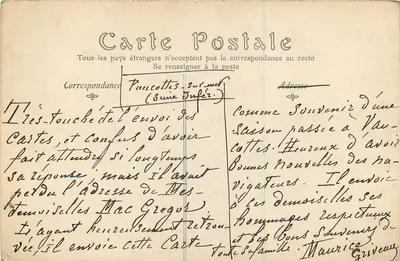 Carte Postale
Tous les pays étrangers n'acceptent pas la correspondance au recto
Se renseigner à la poste
Correspondance
Vaucottes-sur-mer
(Seine Infér.)
Adresse
Très-touché de l'envoi des
cartes, et confus d'avoir
fait attendre si longtemps
sa réponse, mais il avait
perdu l'adresse de Mes-
demoiselles Mac Gregor
L'ayant heureusement retrou-
vée, il envoie cette Carte
comme souvenir d'une
saison passée à Vau-
cottes. Heureux d'avoir
bonnes nouvelles des na-
vigateurs. Il envoie
à ces demoiselles ses
hommages respectueux
et les bons souvenirs de
toute sa famille. Maurice
Griveau